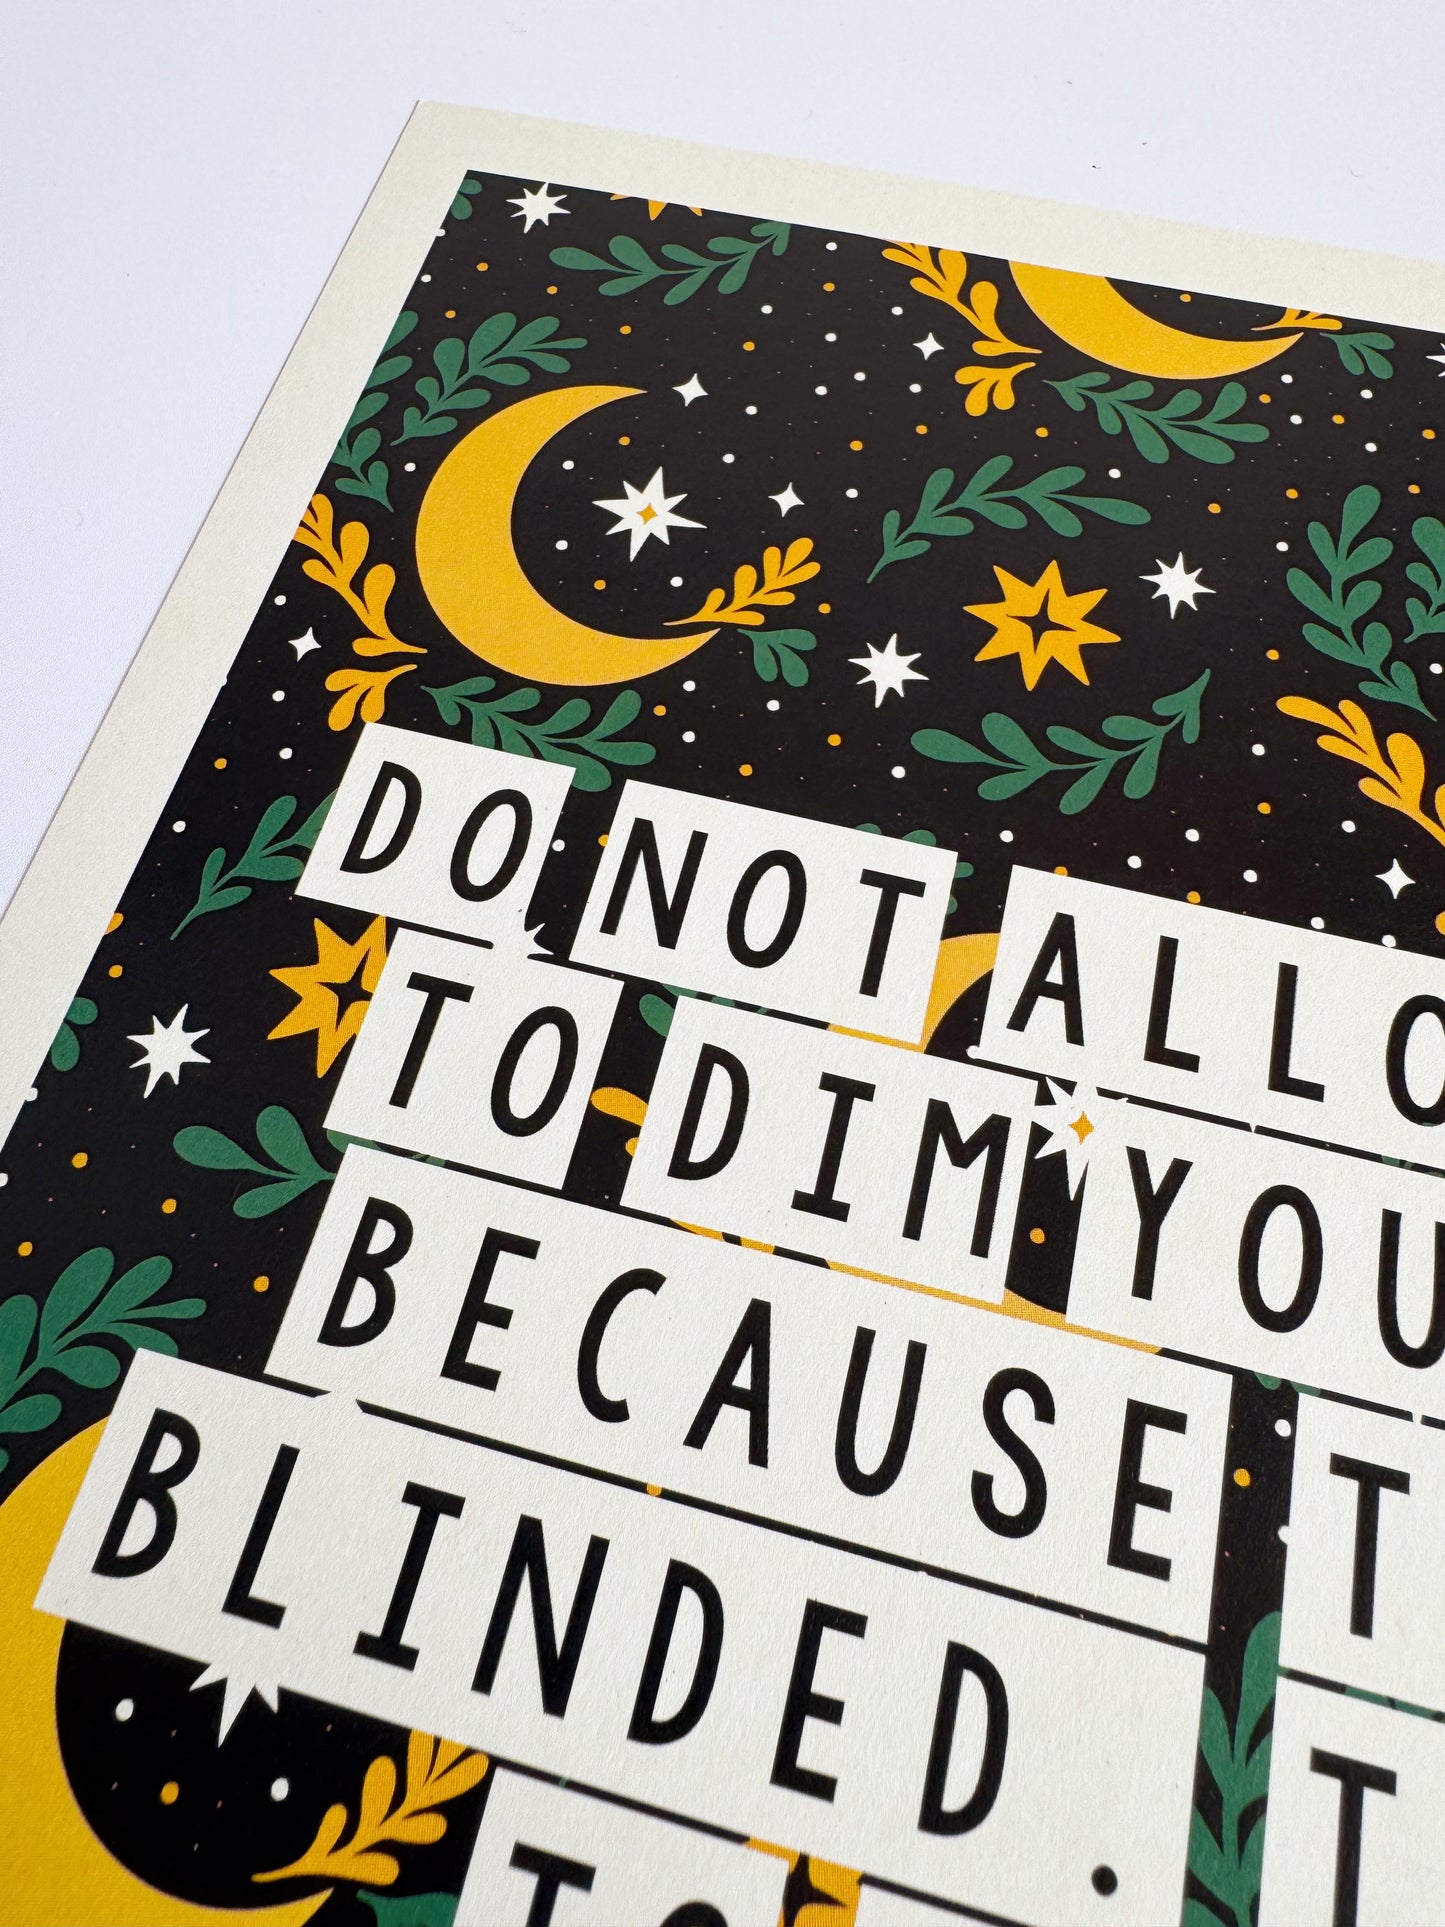 DO NOT ALLO
TO DIM YOU
BECAUSE T
BLINDED. T
TO